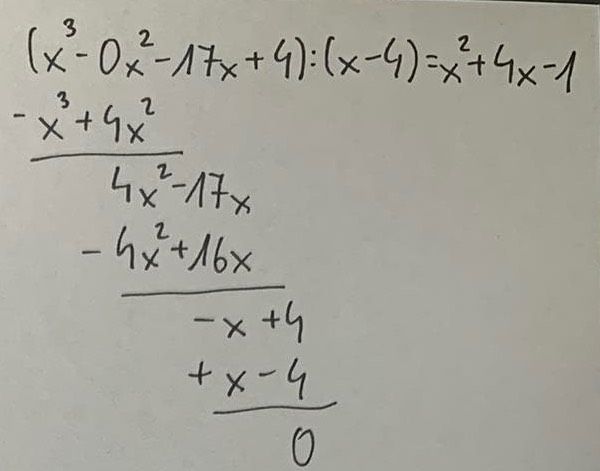 (x³-0x²-17x+4):(x-4)=x²+4x-1
-x³+4x²
4x²-17x
-4x²+16x
-x+4
+x-4
0